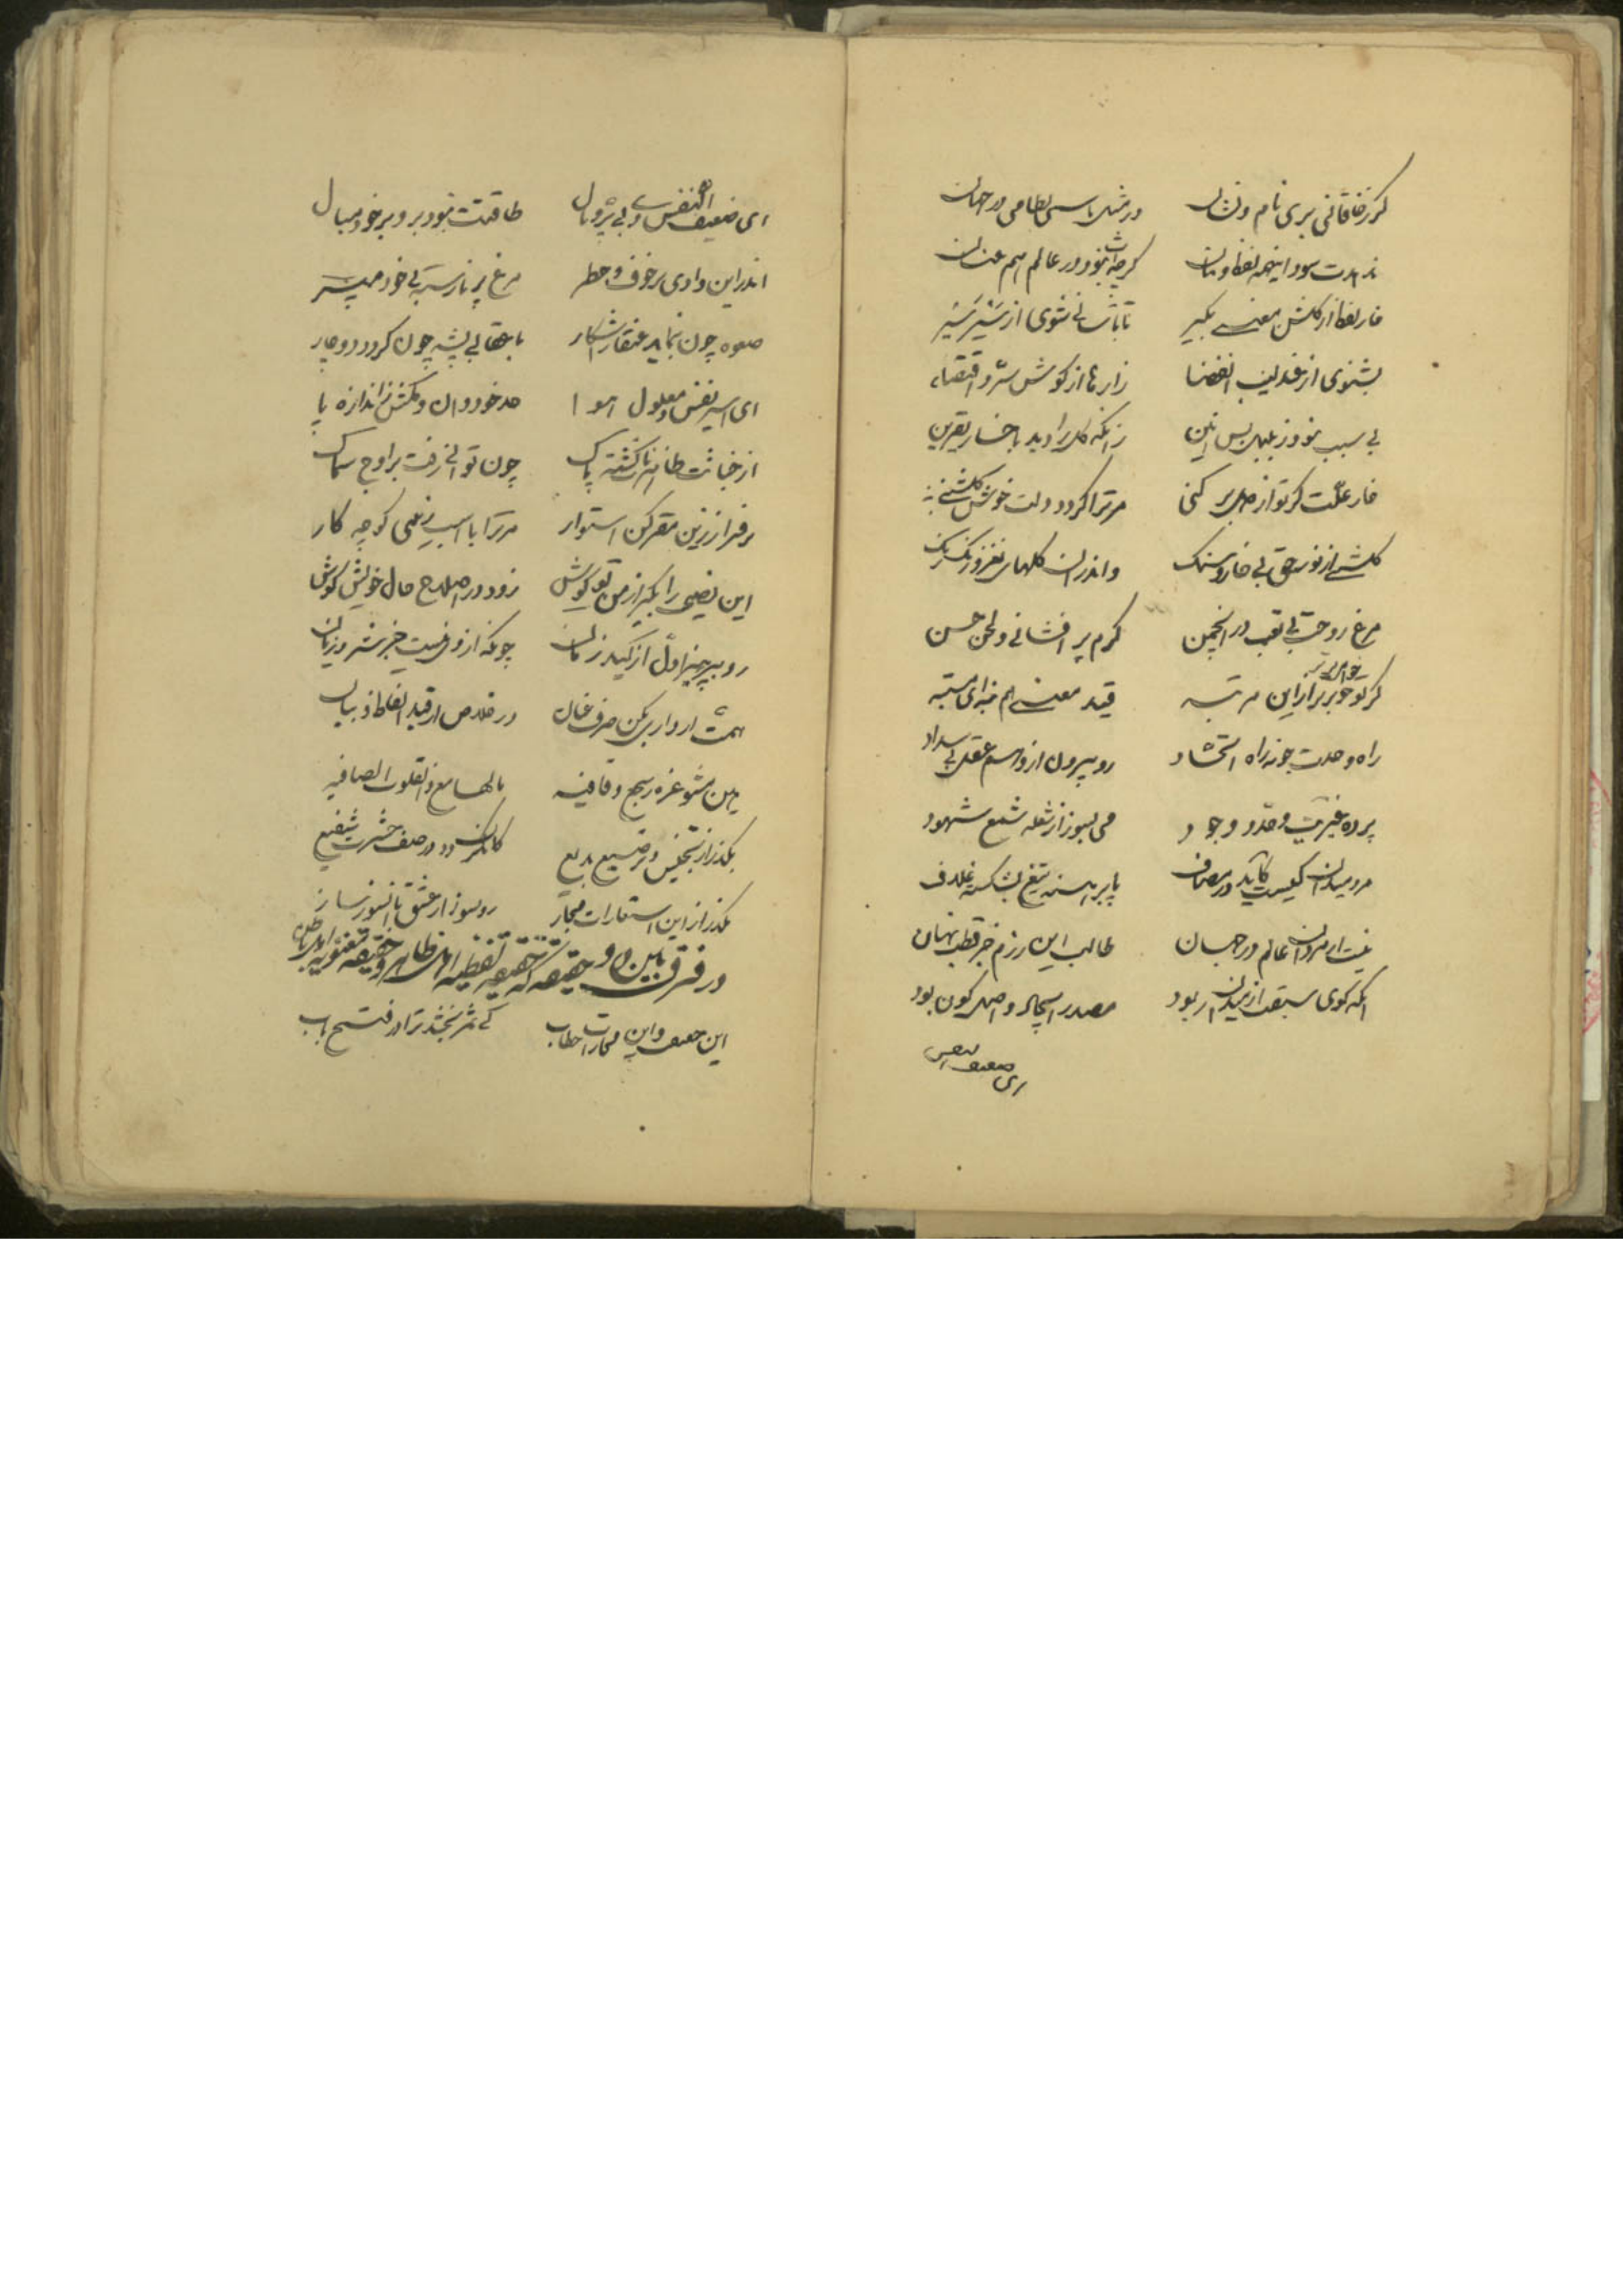 گر ز خاقانی بری نام و نشان در مثل باشی نظامی در جهان
ندهدت سود اینهمه لفظ و بیان گرچه نبود در عالم هم عنان
خار لفظ از گلشن معنی بگیر تا
بشنوی از عندلیب زارها از گوش سر و اقتضاء
بی سبب نبود ز بلبل بس انین زانکه گل را دید با خار قرین
خار علّت گر تو از دل بر کنی مر ترا گردد دلت خوش گلشنی
گلشنی از نور حق بی خار و سنگ و اندران گلهای نغز و رنگ رنگ
مرغ روحت بی تعب در انجمن گرم پر افشانی و لحن حسن
گر تو خواهی برتر از این مرتبه قید معنی هم
راه وحدت جو نه راه رو بیرون از وهم عقل بی سداد
پرده غیریت و وجود می بسوز از شعله شمع شهود
مرد میدان کیست کاید در مصاف با برهنه تیغ بشکسته غلاف
نیست از مردان عالم در جهان طالب این رزم جز قطب نهان
آنکه گوی سبقت از میدان ربود مصدر ایجاد و اصل کون بود
ای ضعیف النفس
ای ضعیف النفس و بی پر و بال طاقتت نبود برو بر خود مبال
اندر این وادی پر خوف و خطر مرغ پر نارسته بی خود مپر
صعوه چون نماید عنقا شکار با عقابی پشه چون گردد دوچار
ای اسیر نفس و معلول هوا حد خود دان و مکش ز اندازه پا
از خباثت ظاهرت ناگشته پاک چون توانی رفت بر اوج سماک
بر فراز زین مقر کن استوار مر ترا با اسب زخمی گو چه کار
این نصیحت را بگیر از من بگوش زود در اصلاح حال خویش کوش
رو بپرهیز اول از کید زبان چونکه از وی نیست جز شر و زیان
همت ار داری بکن صرف عنان در خلاص از قید الفاظ و بیان
هین مشو غره بسجع و قافیه
بگذر از تجنیس و ترصیع بدیع در صف حشرت شفیع
بگذر از این استعارات مجاز رو بسوز از عشق با آن سوز ساز
در فرق مابین دو حقیقه که حقیقه لفظیه اهل ظاهر و حقیقه معنویه اهل باطن
این حقیقت و این مجازات خطاب کی ثمر بخشد ترا در فتح باب